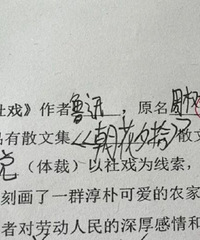 社戏》作者鲁迅，原名周树
品有散文集《朝花夕拾》散文
（体裁）以社戏为线索，
刻画了一群淳朴可爱的农家
者对劳动人民的深厚感情和